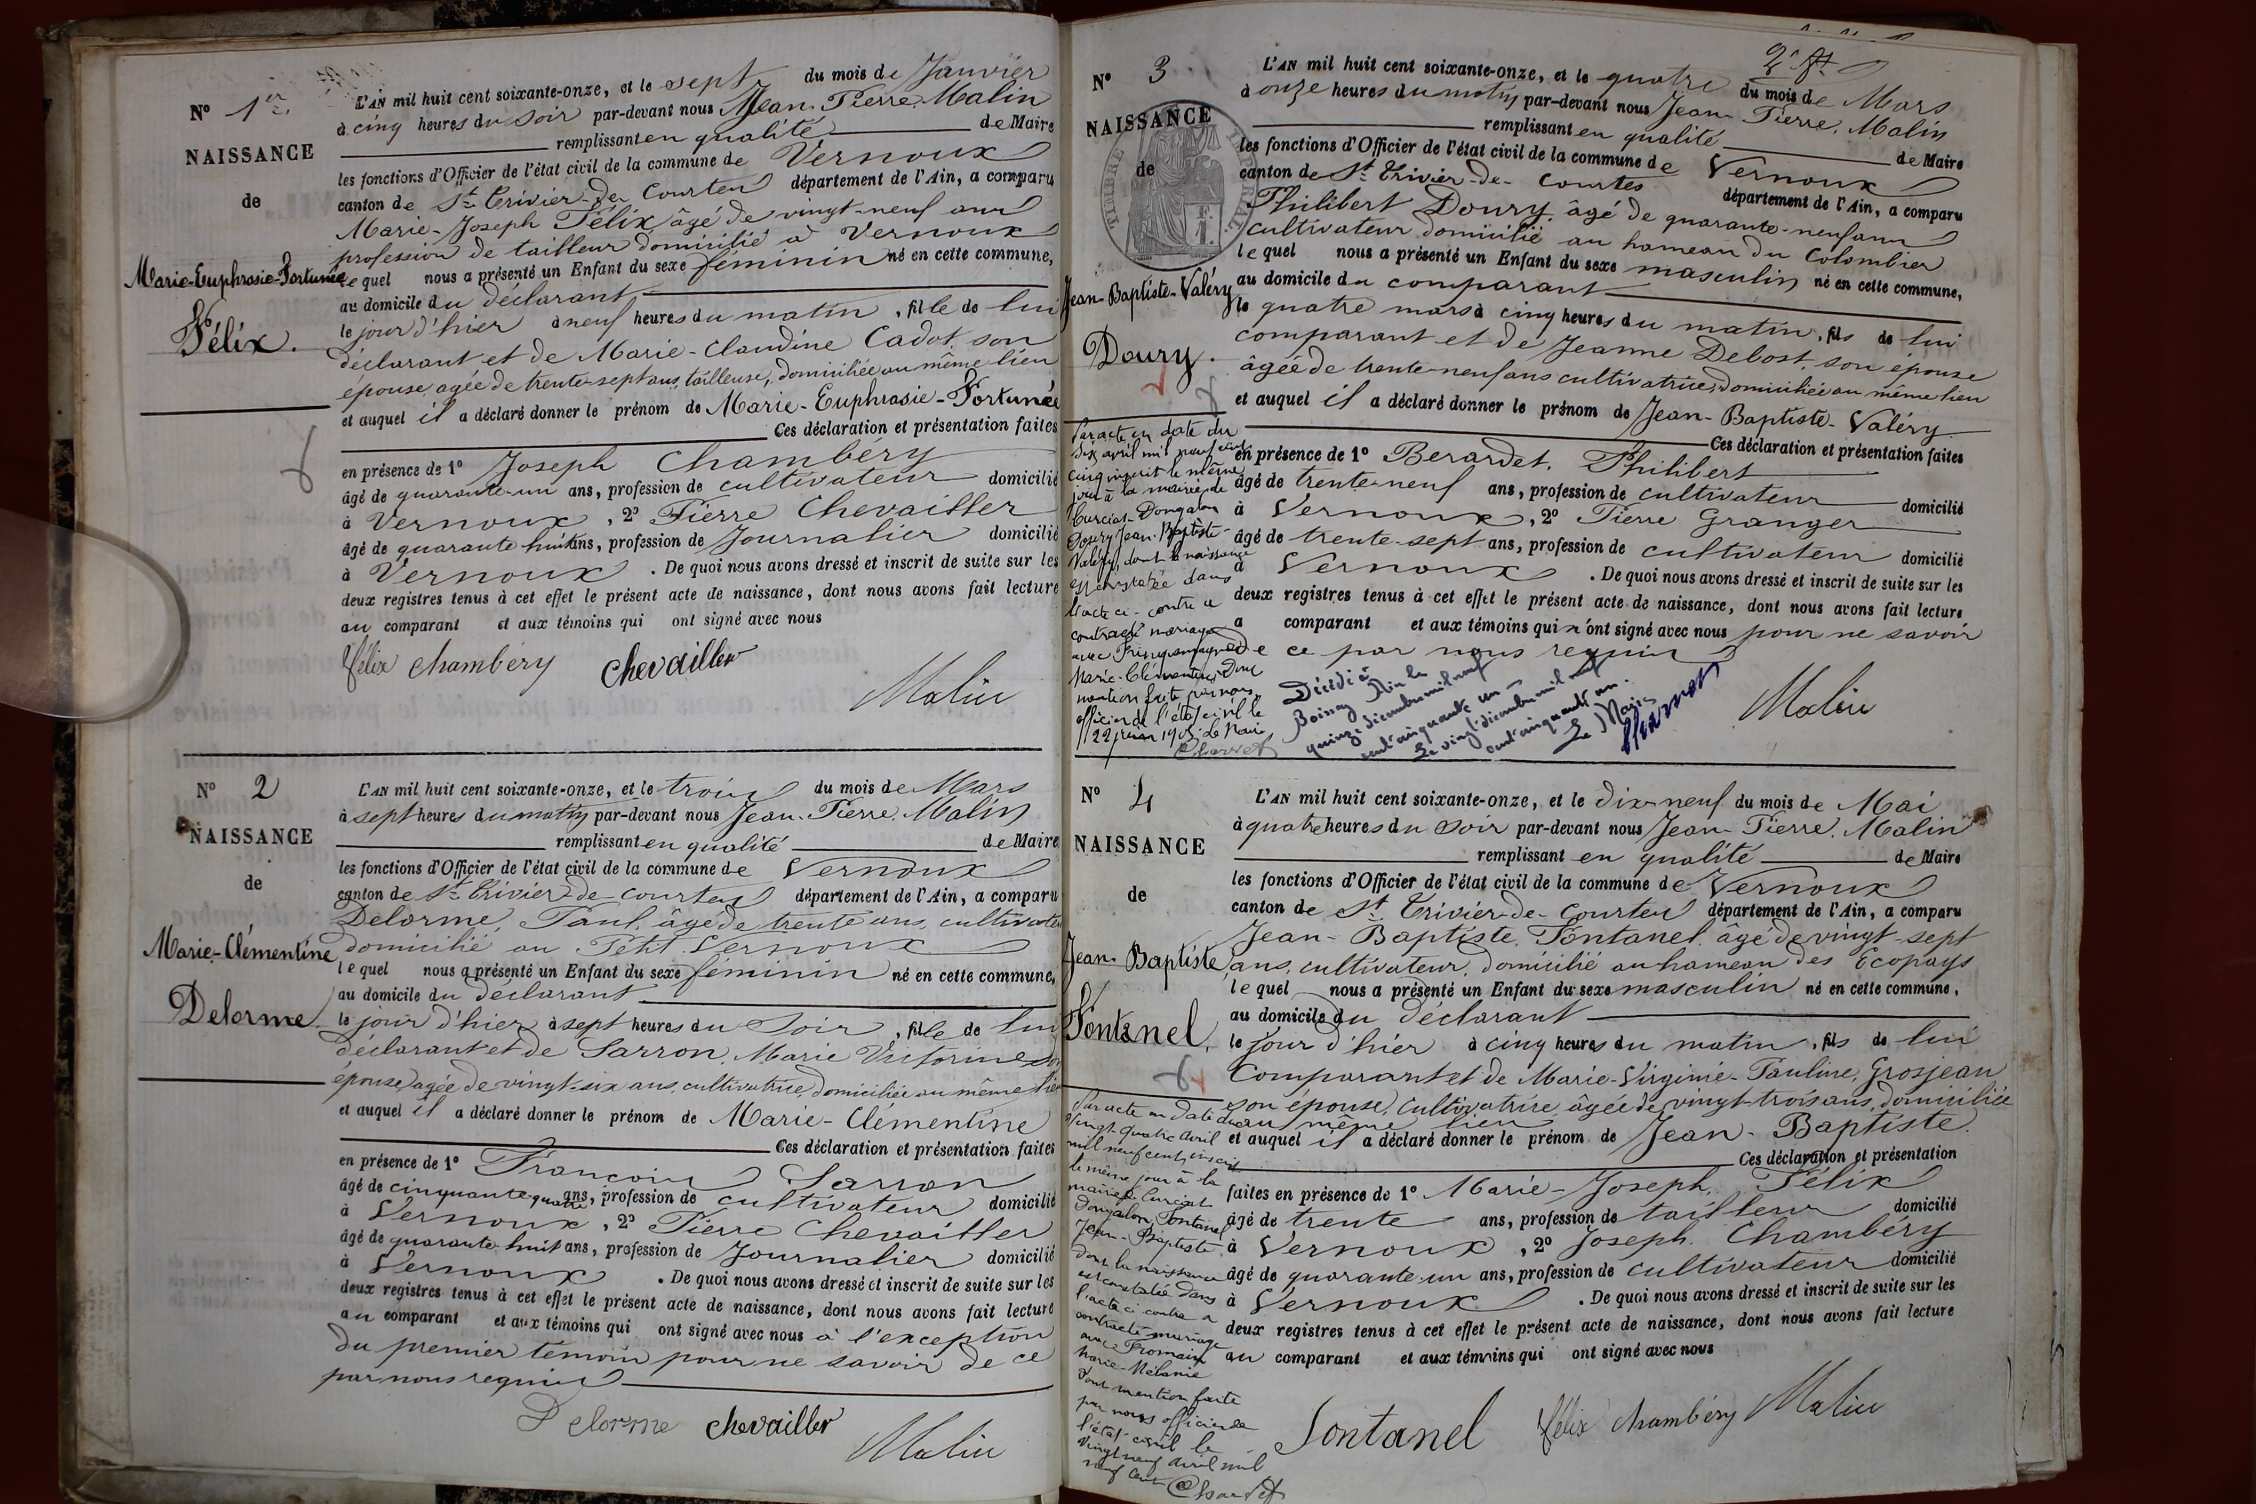 N° 1er
NAISSANCE
de
Marie-Euphrasie-Fortunée
Félix.
L'AN mil huit cent soixante-onze, et le sept du mois de Janvier
à cinq heures du soir par-devant nous Jean-Pierre Malin
remplissant en qualité de Maire
les fonctions d'Officier de l'état civil de la commune de Vernoux
canton de St Trivier-de-Courtes département de l'Ain, a comparu
Marie-Joseph Félix âgé de vingt-neuf ans
profession de tailleur domicilié à Vernoux
lequel nous a présenté un Enfant du sexe féminin né en cette commune,
au domicile du déclarant
le jour d'hier à neuf heures du matin, fille de lui
déclarant et de Marie-Claudine Cadot, son
épouse, agée de trente-sept ans, tailleuse, domiciliée au même lieu
et auquel il a déclaré donner le prénom de Marie-Euphrasie-Fortunée
Ces déclaration et présentation faites
en présence de 1° Joseph Chambéry
âgé de quarante-un ans, profession de cultivateur domicilié
à Vernoux, 2° Pierre Chevailler
âgé de quarante huit ans, profession de Journalier domicilié
à Vernoux. De quoi nous avons dressé et inscrit de suite sur les
deux registres tenus à cet effet le présent acte de naissance, dont nous avons fait lecture
au comparant et aux témoins qui ont signé avec nous
Félix chambéry chevailler
Malin
N° 2
NAISSANCE
de
Marie-Clémentine
Delorme
L'AN mil huit cent soixante-onze, et le trois du mois de Mars
à sept heures du matin par-devant nous Jean-Pierre Malin
remplissant en qualité de Maire
les fonctions d'Officier de l'état civil de la commune de Vernoux
canton de St Trivier-de-Courtes département de l'Ain, a comparu
Delorme, Paul, âgé de trente ans, cultivateur
domicilié au Petit Vernoux
lequel nous a présenté un Enfant du sexe féminin né en cette commune,
au domicile du déclarant
le jour d'hier à sept heures du soir, fille de lui
déclarant et de Sarron, Marie Victorine son
épouse, agée de vingt-six ans, cultivatrice, domiciliée au même lieu
et auquel il a déclaré donner le prénom de Marie-Clémentine
Ces déclaration et présentation faites
en présence de 1° François Sarron
âgé de cinquante quatre ans, profession de cultivateur domicilié
à Vernoux, 2° Pierre Chevailler
âgé de quarante huit ans, profession de Journalier domicilié
à Vernoux. De quoi nous avons dressé et inscrit de suite sur les
deux registres tenus à cet effet le présent acte de naissance, dont nous avons fait lecture
au comparant et aux témoins qui ont signé avec nous à l'exception
du premier témoin pour ne savoir de ce
par nous requis
Delorme chevailler
Malin
N° 3
NAISSANCE
de
TIMBRE IMPÉRIAL
Jean-Baptiste-Valéry
Doury.
L'AN mil huit cent soixante-onze, et le quatre du mois de Mars
à onze heures du matin par-devant nous Jean-Pierre Malin
remplissant en qualité de Maire
les fonctions d'Officier de l'état civil de la commune de Vernoux
canton de St Trivier-de-Courtes département de l'Ain, a comparu
Philibert Doury, âgé de quarante-neuf ans
cultivateur, domicilié au hameau du Colombier
lequel nous a présenté un Enfant du sexe masculin né en cette commune,
au domicile du comparant
le quatre mars à cinq heures du matin, fils de lui
comparant et de Jeanne Debost, son épouse
âgée de trente-neuf ans cultivatrice, domiciliée au même lieu
et auquel il a déclaré donner le prénom de Jean-Baptiste-Valéry
Ces déclaration et présentation faites
en présence de 1° Berardet, Philibert
âgé de trente-neuf ans, profession de cultivateur domicilié
à Vernoux, 2° Pierre Granger
âgé de trente-sept ans, profession de cultivateur domicilié
à Vernoux. De quoi nous avons dressé et inscrit de suite sur les
deux registres tenus à cet effet le présent acte de naissance, dont nous avons fait lecture
a comparant et aux témoins qui n'ont signé avec nous pour ne savoir
de ce par nous requis
Malin
Par acte en date du
dix avril mil neuf cent
cinq inscrit le même
jour à la mairie de
Curciat-Dongalon
Doury Jean-Baptiste-
Valéry, dont la naissance
est constatée dans
l'acte ci-contre a
contracté mariage
avec
Marie-Clémentine, Dont
mention faite par nous
officier de l'état civil le
22 1905. Le Maire
Charvet
Décédé à
Boissey Ain le
quinze décembre mil neuf
cent cinquante un
Le vingt décembre mil neuf
cent cinquante un.
Le Maire
N° 4
NAISSANCE
de
Jean-Baptiste
Fontanel
L'AN mil huit cent soixante-onze, et le dix-neuf du mois de Mai
à quatre heures du soir par-devant nous Jean-Pierre Malin
remplissant en qualité de Maire
les fonctions d'Officier de l'état civil de la commune de Vernoux
canton de St Trivier-de-Courtes département de l'Ain, a comparu
Jean-Baptiste Fontanel, âgé de vingt-sept
ans, cultivateur, domicilié au hameau des Ecopays
lequel nous a présenté un Enfant du sexe masculin né en cette commune,
au domicile du déclarant
le jour d'hier à cinq heures du matin, fils de lui
Comparant et de Marie-Virginie-Pauline, Grosjean
son épouse, cultivatrice, âgée de vingt-trois ans, domiciliée
au même lieu
et auquel il a déclaré donner le prénom de Jean-Baptiste
Ces déclaration et présentation
faites en présence de 1° Marie-Joseph, Félix
âgé de trente ans, profession de tailleur domicilié
à Vernoux, 2° Joseph Chambéry
âgé de quarante-un ans, profession de cultivateur domicilié
à Vernoux. De quoi nous avons dressé et inscrit de suite sur les
deux registres tenus à cet effet le présent acte de naissance, dont nous avons fait lecture
au comparant et aux témoins qui ont signé avec nous
Fontanel Félix chambéry Malin
Par acte en date du
vingt-quatre avril
mil neuf cent, inscrit
le même jour à la
mairie de Curciat
Dongalon, Fontanel
Jean-Baptiste,
dont la naissance
est constatée dans
l'acte ci contre a
contracté mariage
avec Promain
Marie-Mélanie
Dont mention faite
par nous officier de
l'état civil le
vingt neuf avril mil
neuf cent Charvet